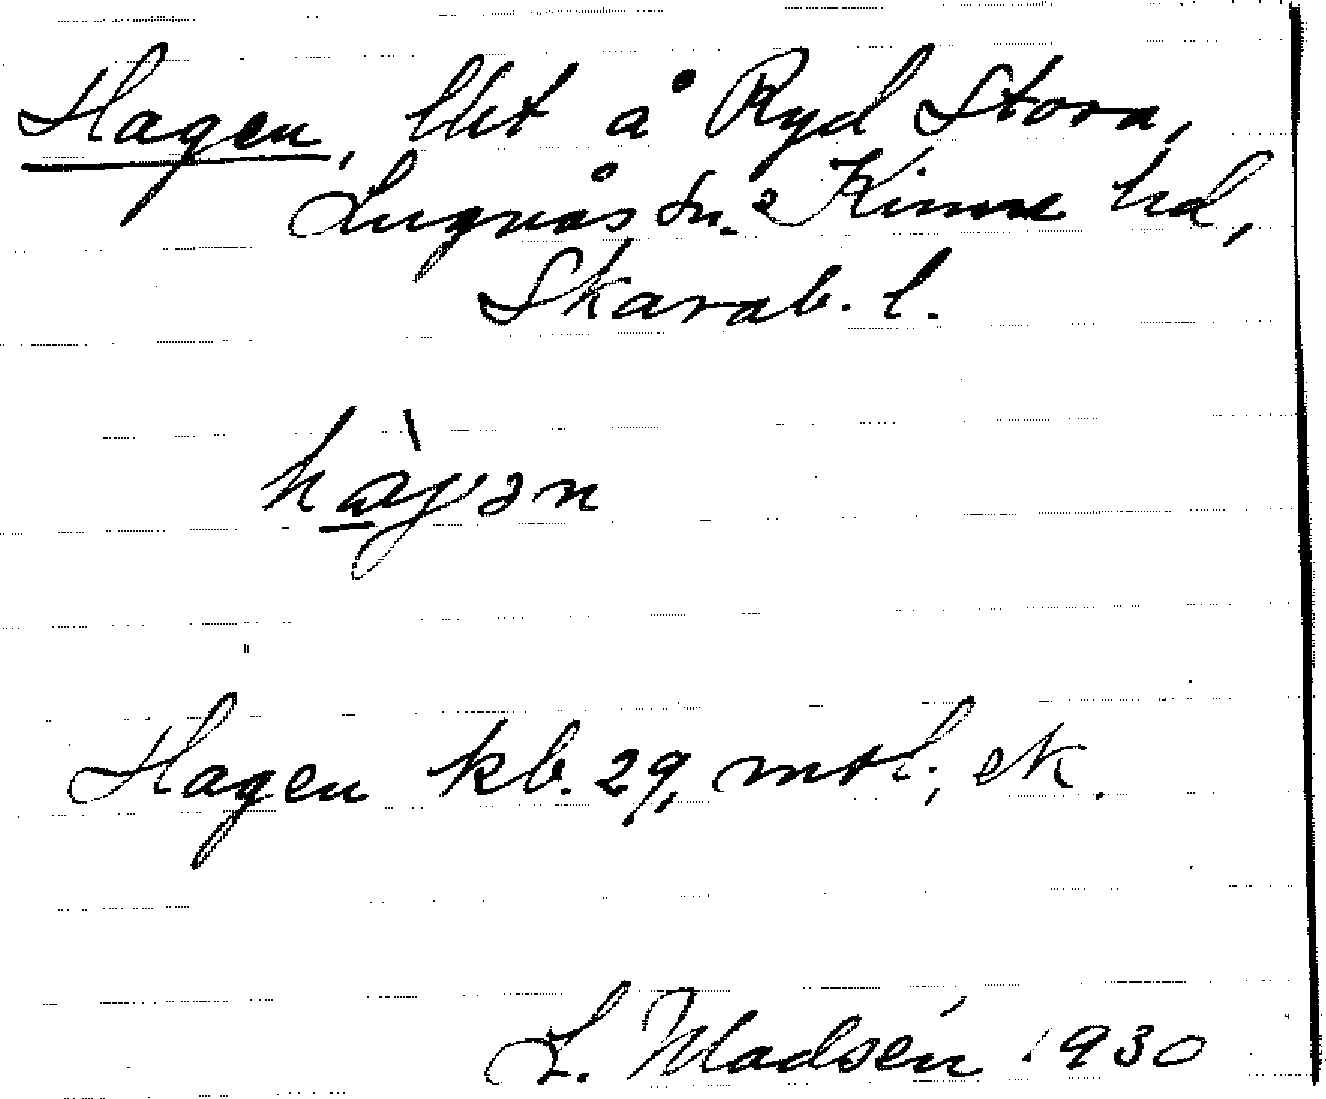 Hagen, lht å Ryd Stora,
Lugnås sn., Kinne hd,
Skarab. l.
hàgən
Hagen kb. 29, mtl; ek.
L. Madsén 1930